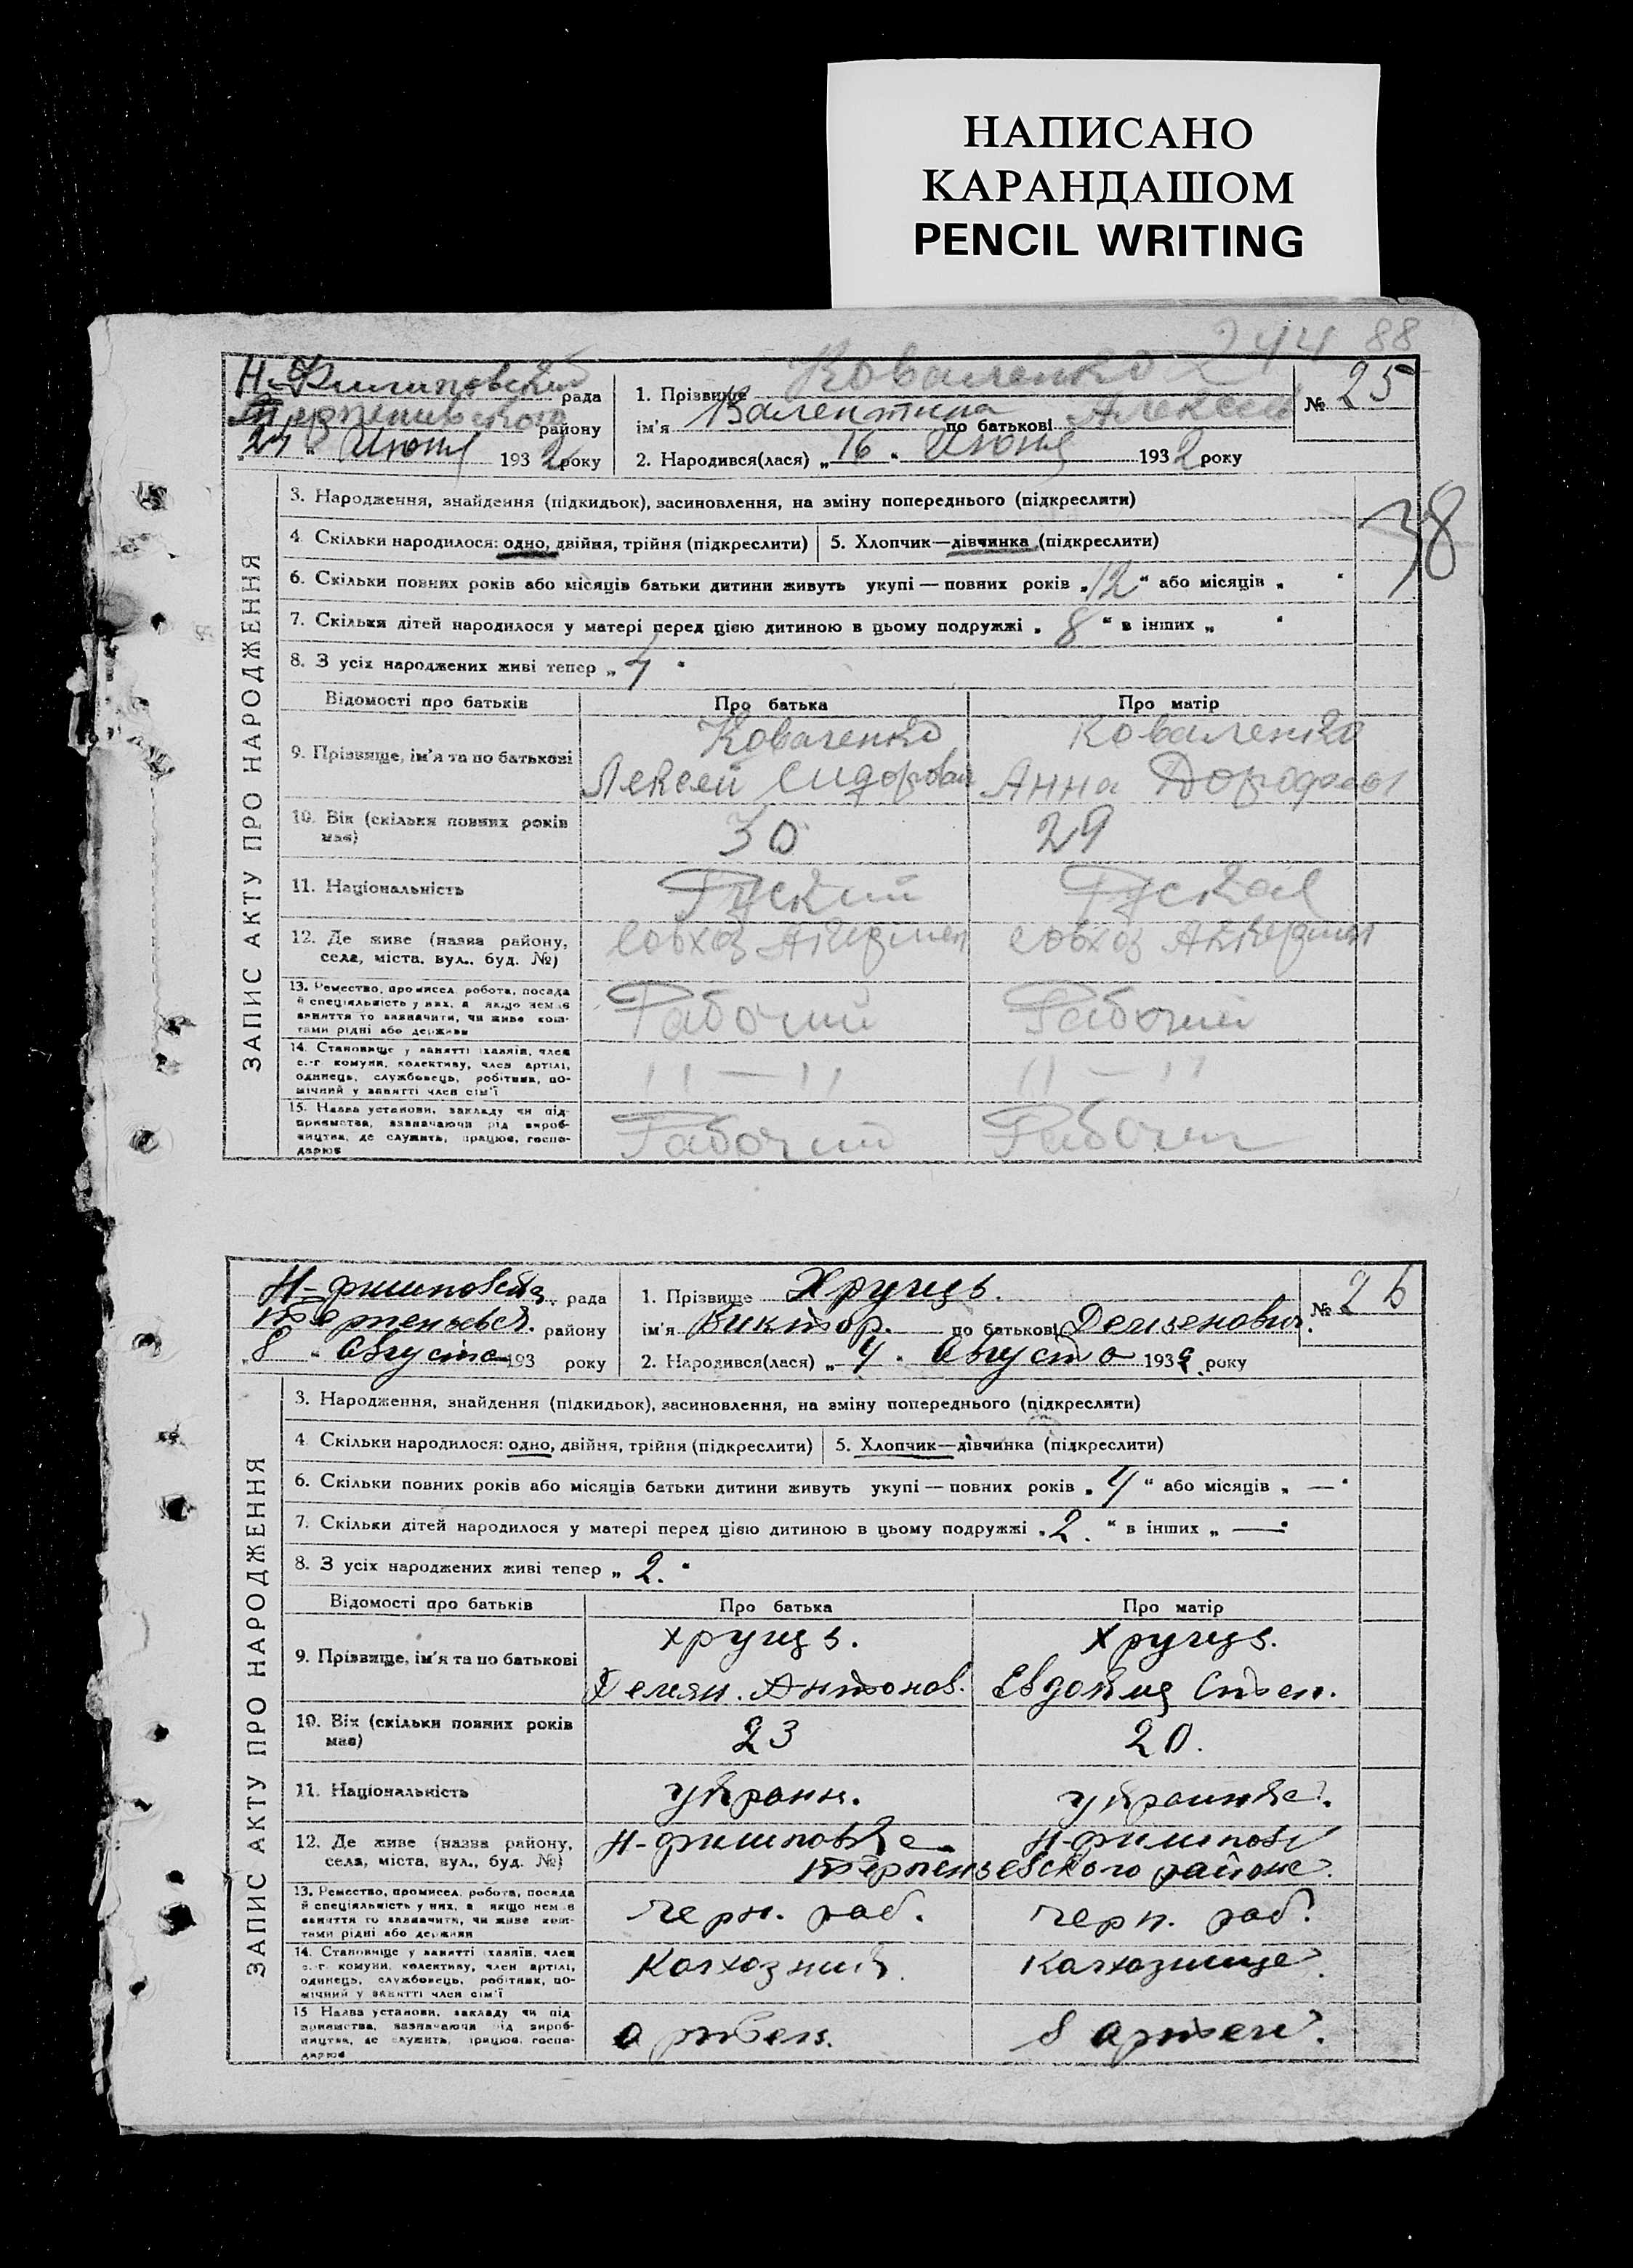 НАПИСАНО
КАРАНДАШОМ
PENCIL WRITING
244 88
Н-Филиповский рада
району
1. Прізвище Коваленко
ім'я Валентина по батькові Алексеев
№ 25
" Июня 1932 року
2. Народився(лася) „16" Июня 1932 року
38
ЗАПИС АКТУ ПРО НАРОДЖЕННЯ
3. Народження, знайдення (підкидьок), засиновлення, на зміну попереднього (підкреслити)
4. Скільки народилося: одно, двійня, трійня (підкреслити) 5. Хлопчик—дівчинка (підкреслити)
6. Скільки повних років або місяців батьки дитини живуть укупі — повних років „12" або місяців „ "
7. Скільки дітей народилося у матері перед цією дитиною в цьому подружжі „8" в інших „ "
8. З усіх народжених живі тепер „7"
Відомості про батьків Про батька Про матір
9. Прізвище, ім'я та по батькові
Коваленко Коваленко
Лексей Сидорович Анна
10. Вік (скільки повних років має) 30 29
11. Національність Руский Руская
12. Де живе (назва району, села, міста, вул., буд. №)
совхоз Аккермен совхоз Аккермен
13. Ремество, промисел, робота, посада
й спеціяльність у них, а якщо немає
заняття то зазначити, чи живе кош-
тами рідні або держави
Рабочий Рабочий
14. Становище у занятті (хазяїн, член
с.-г. комуни, колективу, член артілі,
одинець, службовець, робітник, по-
мічний у занятті член сім'ї
11 — 11 11 — 11
15. Назва установи, закладу чи під-
приємства, зазначаючи рід вироб-
ництва, де служить, працює, госпо-
дарює
Рабочий Рабочий
Н-филиповск. рада
Терпеньевск. району
1. Прізвище Хрущь.
ім'я Виктор. по батькові Демьенович.
№ 26
„8" Августа 193 року
2. Народився(лася) „4" Августа 1932 року
ЗАПИС АКТУ ПРО НАРОДЖЕННЯ
3. Народження, знайдення (підкидьок), засиновлення, на зміну попереднього (підкреслити)
4. Скільки народилося: одно, двійня, трійня (підкреслити) 5. Хлопчик—дівчинка (підкреслити)
6. Скільки повних років або місяців батьки дитини живуть укупі — повних років „4" або місяців „—"
7. Скільки дітей народилося у матері перед цією дитиною в цьому подружжі „2." в інших „—"
8. З усіх народжених живі тепер „2."
Відомості про батьків Про батька Про матір
9. Прізвище, ім'я та по батькові
Хрущь. Хрущь.
Демян. Антонов. Евдокия Степ.
10. Вік (скільки повних років має) 23 20.
11. Національність украин. украинка.
12. Де живе (назва району, села, міста, вул., буд. №)
Н-филиповка Н-филипов
Терпеньевского района
13. Ремество, промисел, робота, посада
й спеціяльність у них, а якщо немає
заняття то зазначити, чи живе кош-
тами рідні або держави
черн. раб. черн. раб.
14. Становище у занятті (хазяїн, член
с.-г. комуни, колективу, член артілі,
одинець, службовець, робітник, по-
мічний у занятті член сім'ї
Колхозник Колхознице
15. Назва установи, закладу чи під-
приємства, зазначаючи рід вироб-
ництва, де служить, працює, госпо-
дарює
артель. в артели.